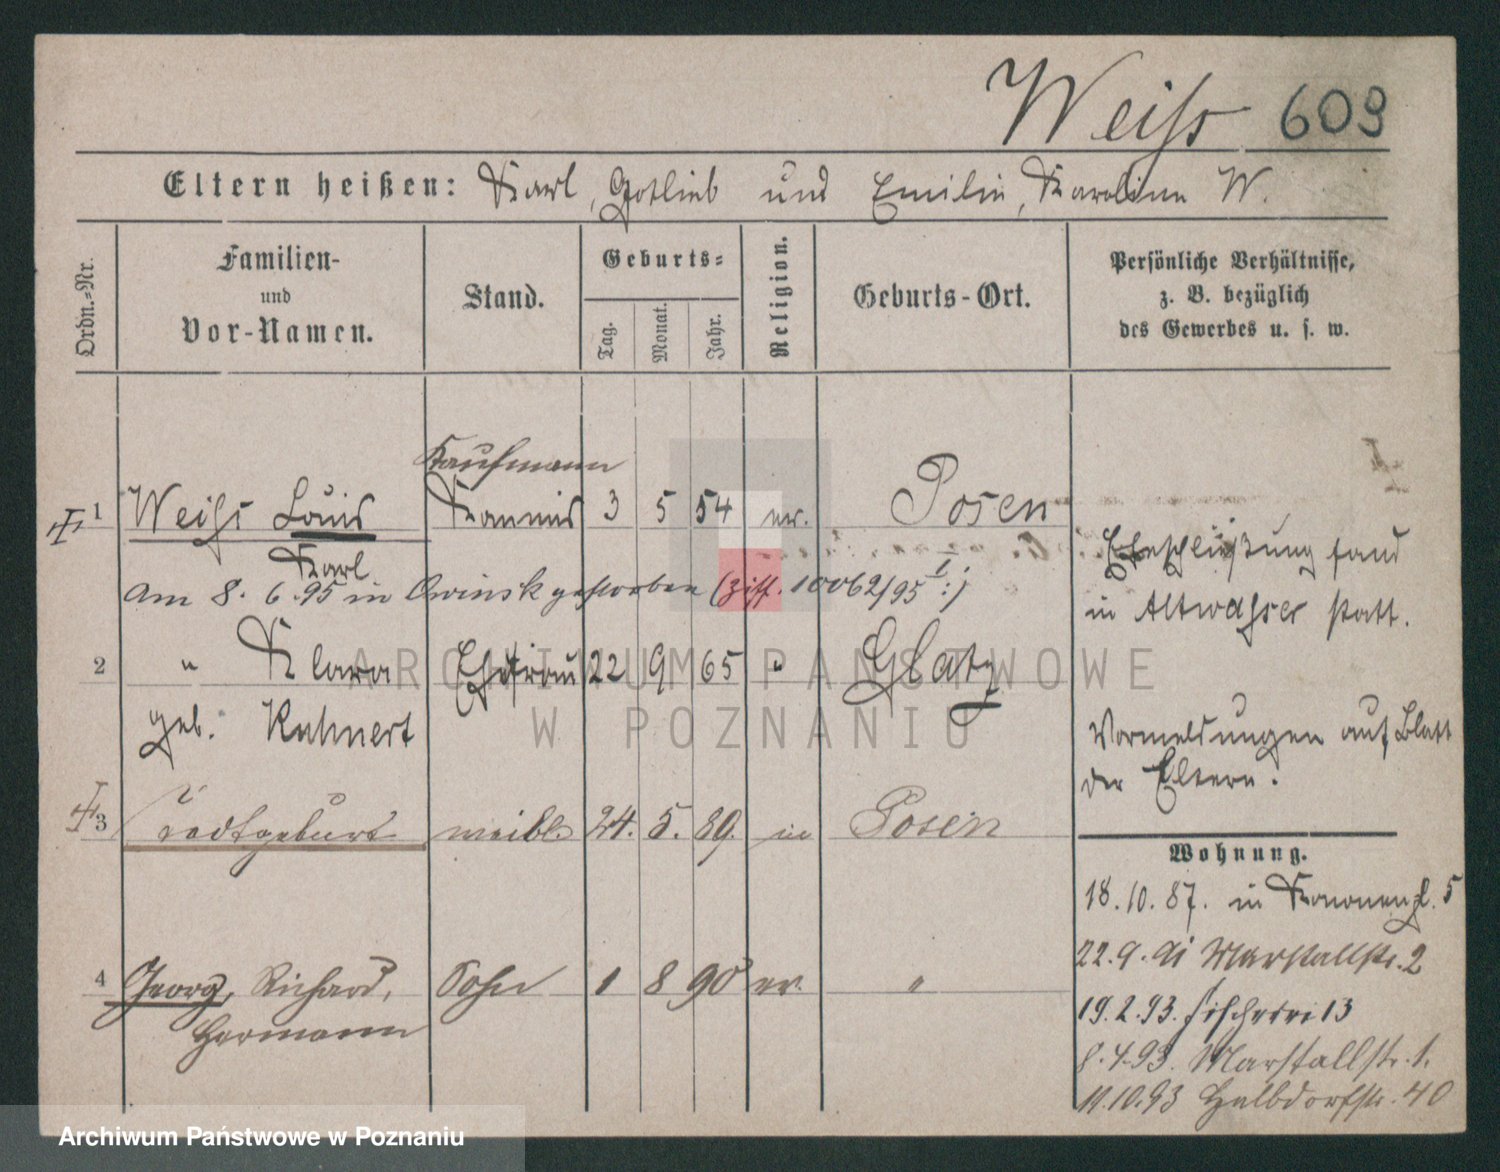 Weiß 609
Eltern heißen: Karl, Gotlieb und Emilie, Karoline W.
Ordn.=Nr.
Familien-
und
Vor-Namen.
Stand.
Geburts=
Tag.
Monat.
Jahr.
Religion.
Geburts-Ort.
Persönliche Verhältnisse,
z. B. bezüglich
des Gewerbes u. s. w.
Kaufmann
1 Weiß Louis 3 5 54 ev. Posen
Karl
am 8. 6. 95 in Owinsk gestorben (Ziff. 10062/95 I :)
Eheschließung fand
in Altwasser statt.
2 " Klara Ehefrau 22 9 65 " Glatz
geb. Kuhnert
Vormeldungen auf Blatt
der Eltern.
3 Todtgeburt weibl. 24. 5. 89. Posen
Wohnung.
18. 10. 87. in Kanonenpl. 5
22. 9. 91 Marstallstr. 2
19. 2. 93. Fischerei 13
8. 4. 93. Marstallstr. 1.
11. 10. 93 Halbdorfstr. 40
4 Georg, Richard, Sohn 1 8 90 ev. "
Hermann
ARCHIWUM PAŃSTWOWE
W POZNANIU
Archiwum Państwowe w Poznaniu